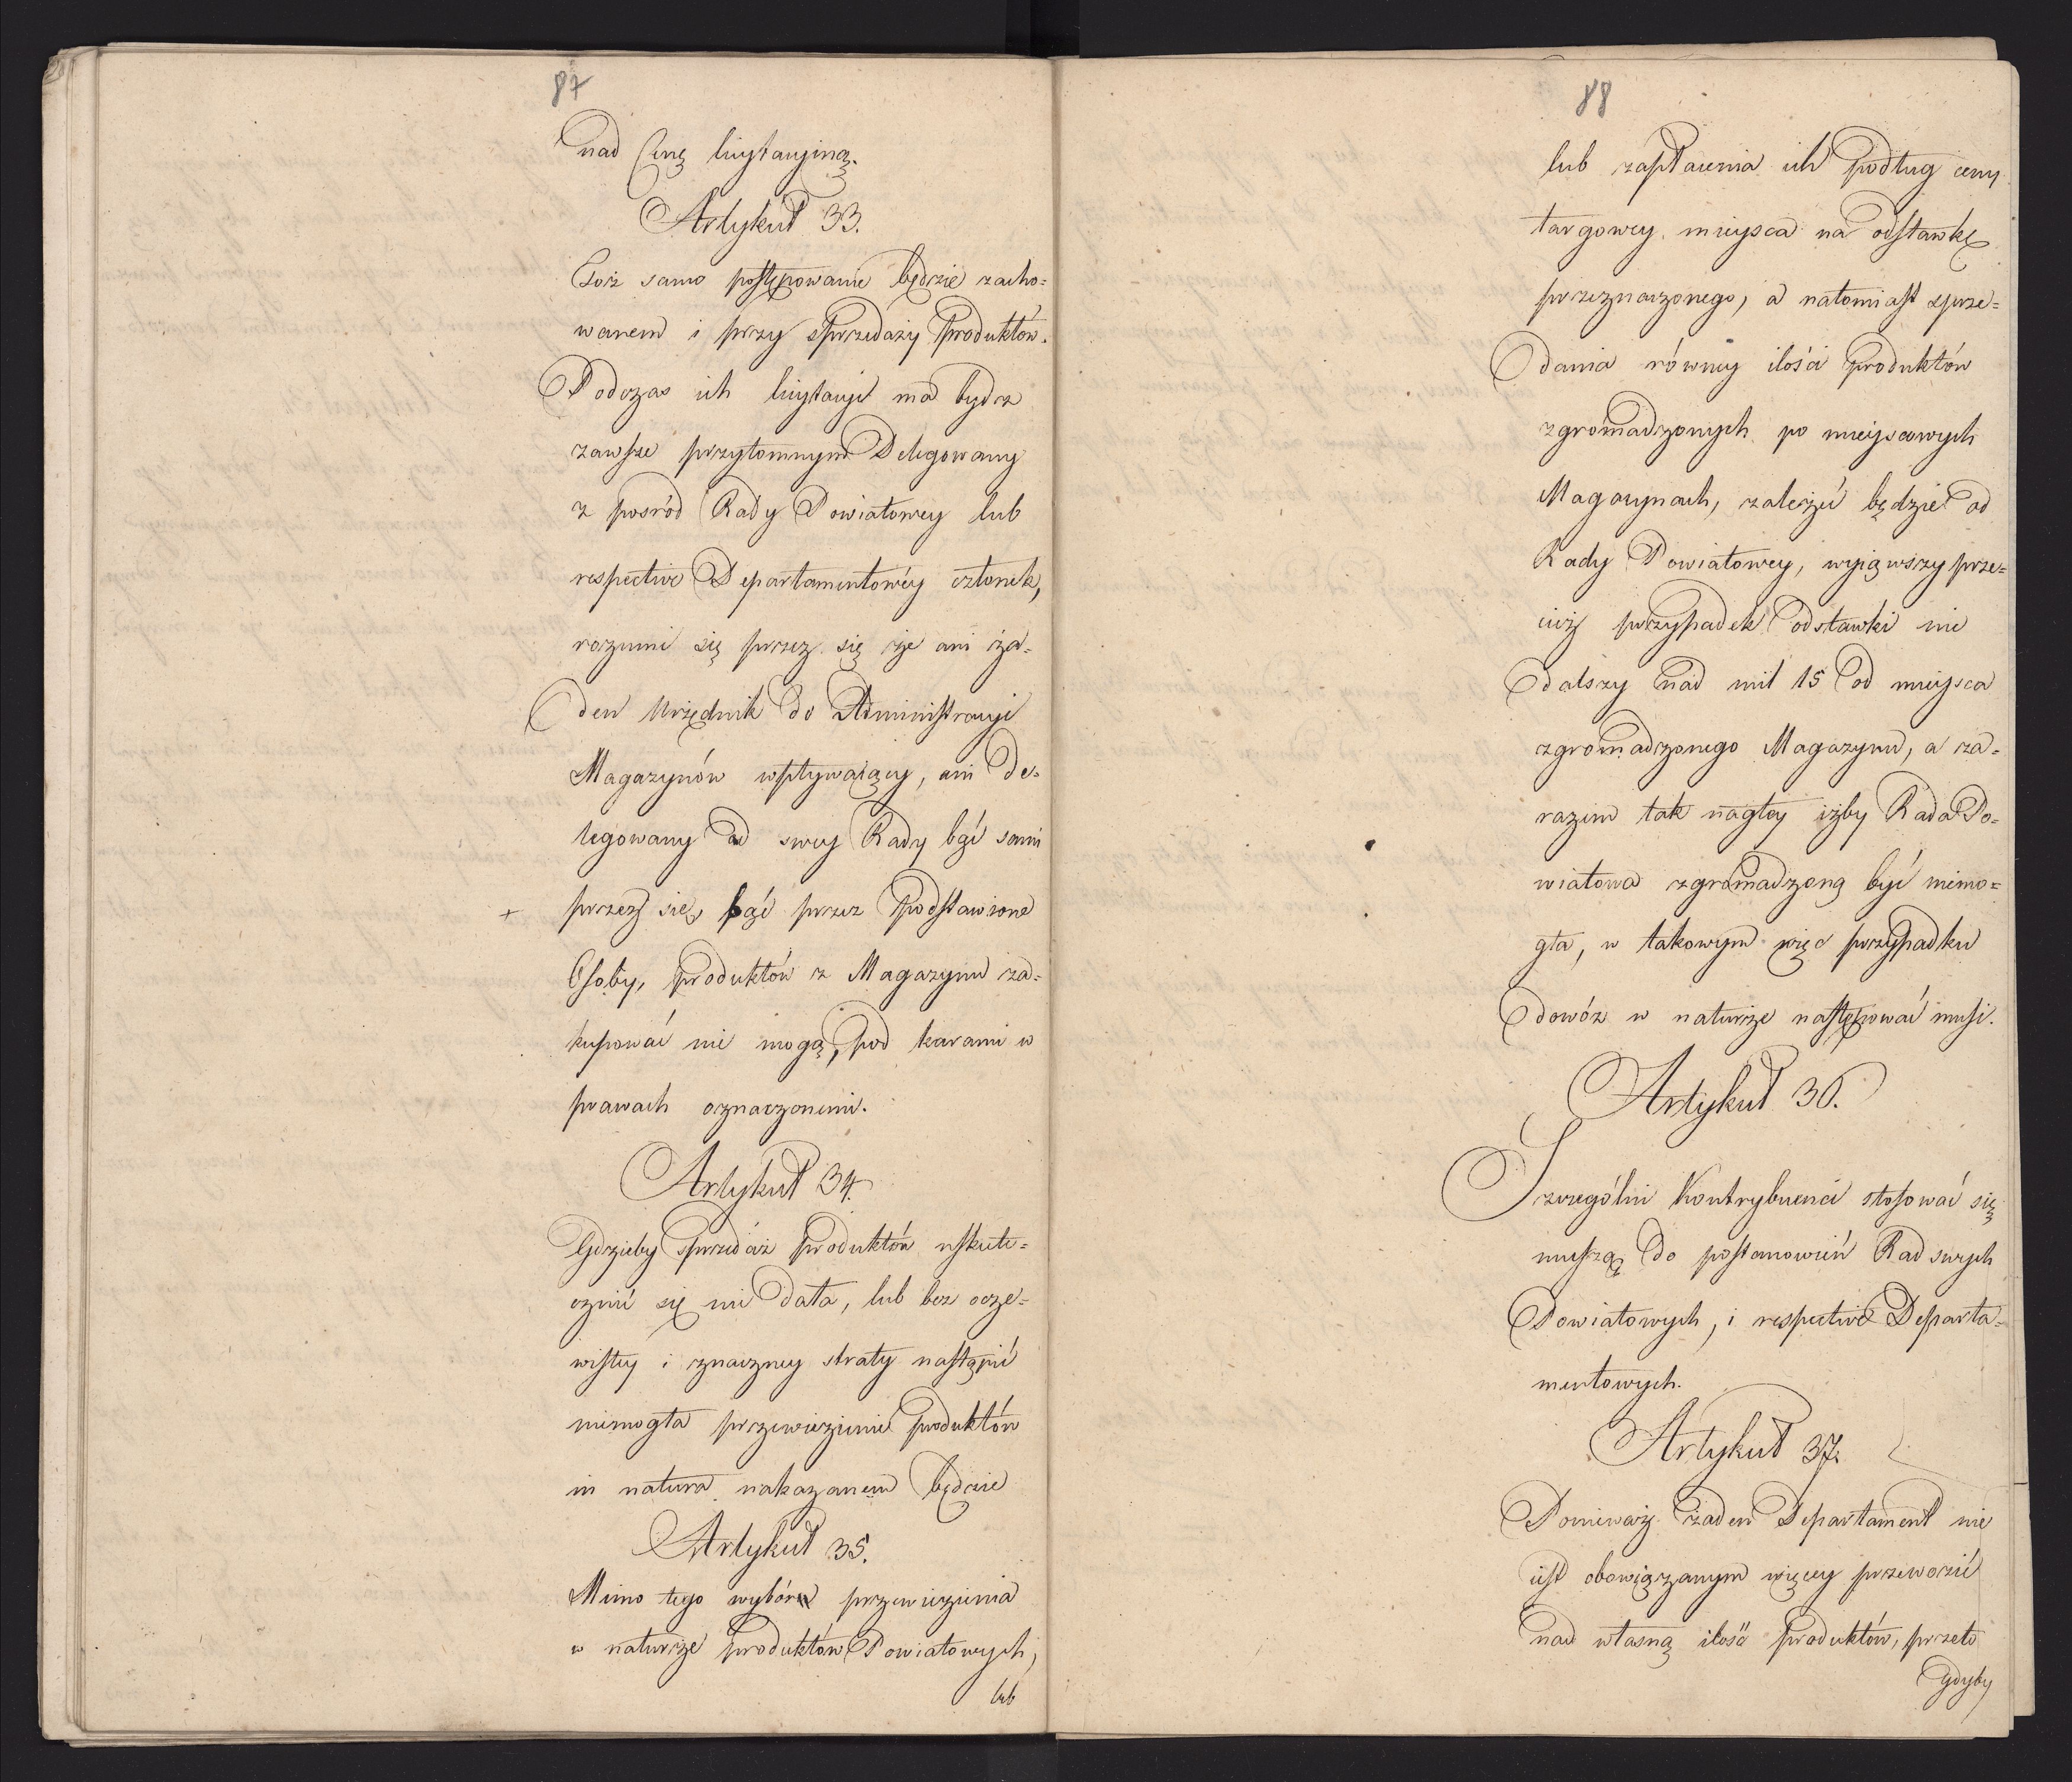 87
nad Cenę licytacyiną.
Artykuł 33.
Toż samo postępowanie będzie zacho=
wanem i przy sprzedaży Produktów.
Podczas ich licytacyi ma bydz
zawsze przytomnym Delegowany
z posród Rady Powiatowey lub
respective Departamentowéy członek,
rozumi się przez się że ani ża=
den Urzędnik do Administracyi
Magazynów wpływaiący, ani de=
legowany od swey Rady bąć sami
+ przez się, bąć przez Podstawione
Osoby, produktów z Magazynu za=
kupować nie mogą, pod karami w
prawach oznaczonemi.
Artykuł 34.
Gdzieby sprzedaż Produktów uskute=
cznić się nie dała, lub bez ocze=
wistey i znaczney straty nastąpić
niemogła przewiezienie produktów
in natura nakazanem będzie
Artykuł 35.
Mimo tego wybór przewiezienia
w naturze produktów Powiatowych,
lub
88
lub zapłacenia ich podług ceny
targowey mieysca na odstawkę
przeznaczonego, a natomiast sprze=
dania równey ilości produktów
zgromadzonych po mieyscowych
Magazynach, zależeć będzie od
Rady Powiatowey, wyiąwszy prze=
cież przypadek odstawki nie
dalszy nad mil 15 od mieysca
zgromadzonego Magazynu, a za=
razem tak nagłey iżby Rada Po=
wiatowa zgromadzoną być niemo=
gła, w takowym więc przypadku
dowóz w naturze następować musi.
Artykuł 36.
Szczególni Kontrybuenci stosować się
muszą do postanowień Rad swych
Powiatowych, i respective Departa=
mentowych.
Artykuł 37.
Ponieważ żaden Departament nie
iest obowiązanym więcey przewozić
nad własną ilość produktów, przeto
Gdyby